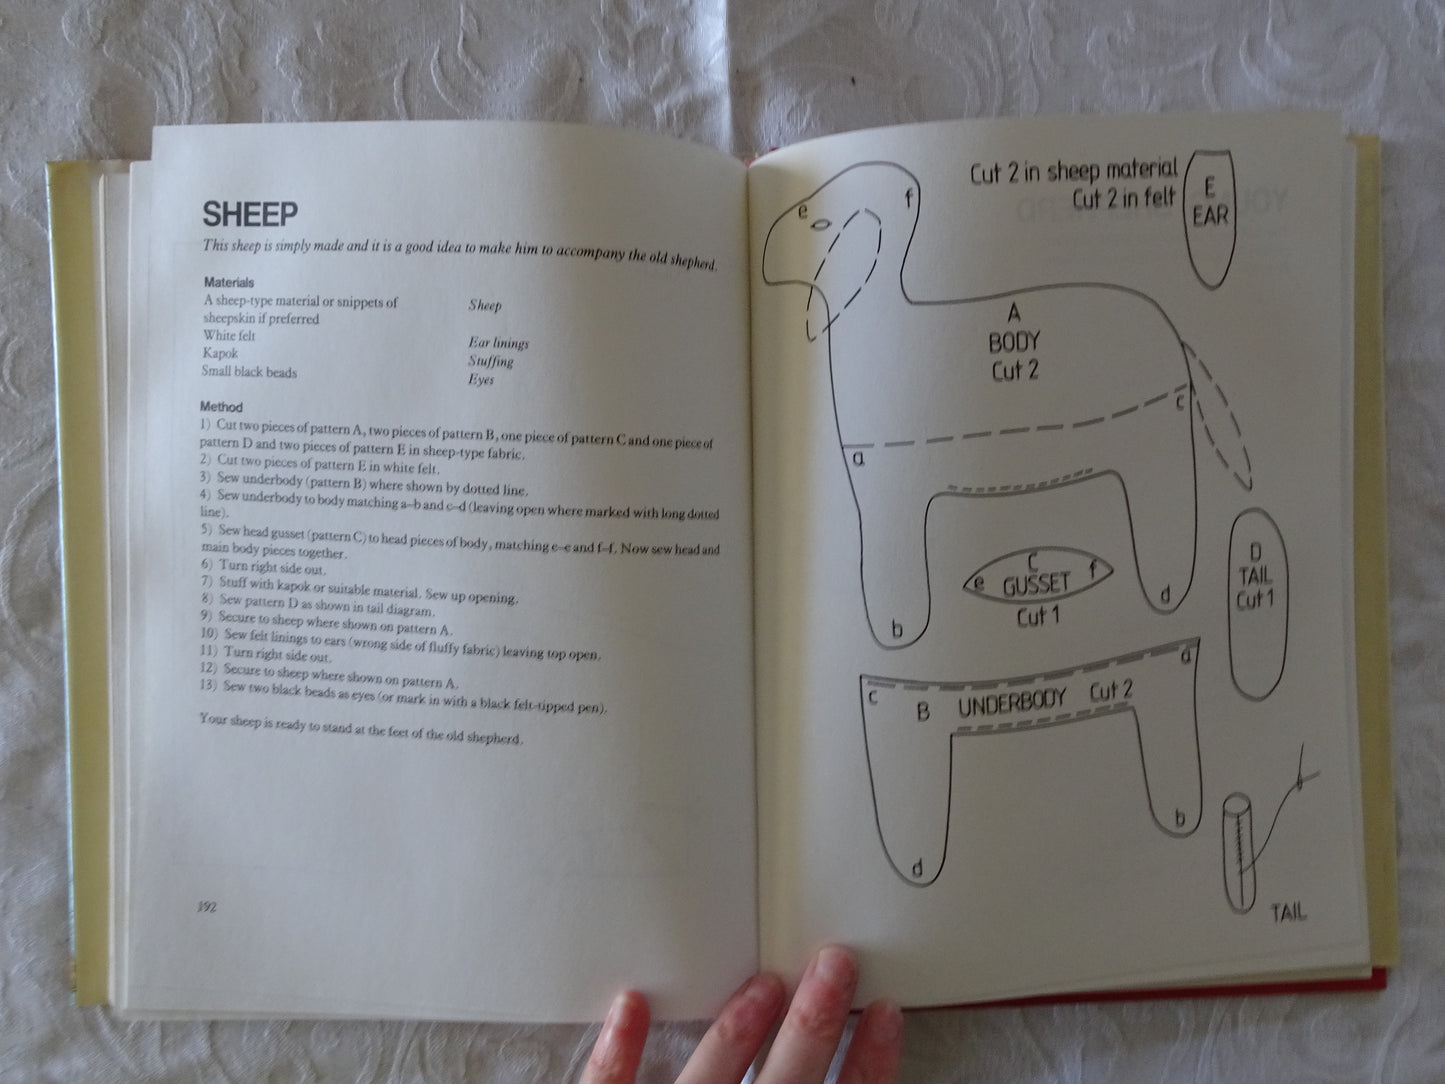 SHEEP
This sheep is simply made and it is a good idea to make him to accompany the old shepherd.
Materials
A sheep-type material or snippets of
sheepskin if preferred
Sheep
White felt
Ear linings
Kapok
Stuffing
Small black beads
Eyes
Method
1) Cut two pieces of pattern A, two pieces of pattern B, one piece of pattern C and one piece of
pattern D and two pieces of pattern E in sheep-type fabric.
2) Cut two pieces of pattern E in white felt.
3) Sew underbody (pattern B) where shown by dotted line.
4) Sew underbody to body matching a–b and c–d (leaving open where marked with long dotted
line).
5) Sew head gusset (pattern C) to head pieces of body, matching e–e and f–f. Now sew head and
main body pieces together.
6) Turn right side out.
7) Stuff with kapok or suitable material. Sew up opening.
8) Sew pattern D as shown in tail diagram.
9) Secure to sheep where shown on pattern A.
10) Sew felt linings to ears (wrong side of fluffy fabric) leaving top open.
11) Turn right side out.
12) Secure to sheep where shown on pattern A.
13) Sew two black beads as eyes (or mark in with a black felt-tipped pen).
Your sheep is ready to stand at the feet of the old shepherd.
192
Cut 2 in sheep material
Cut 2 in felt
E
EAR
e
f
A
BODY
Cut 2
c
a
b
d
C
e GUSSET f
Cut 1
D
TAIL
Cut 1
a
c
B UNDERBODY Cut 2
b
d
TAIL